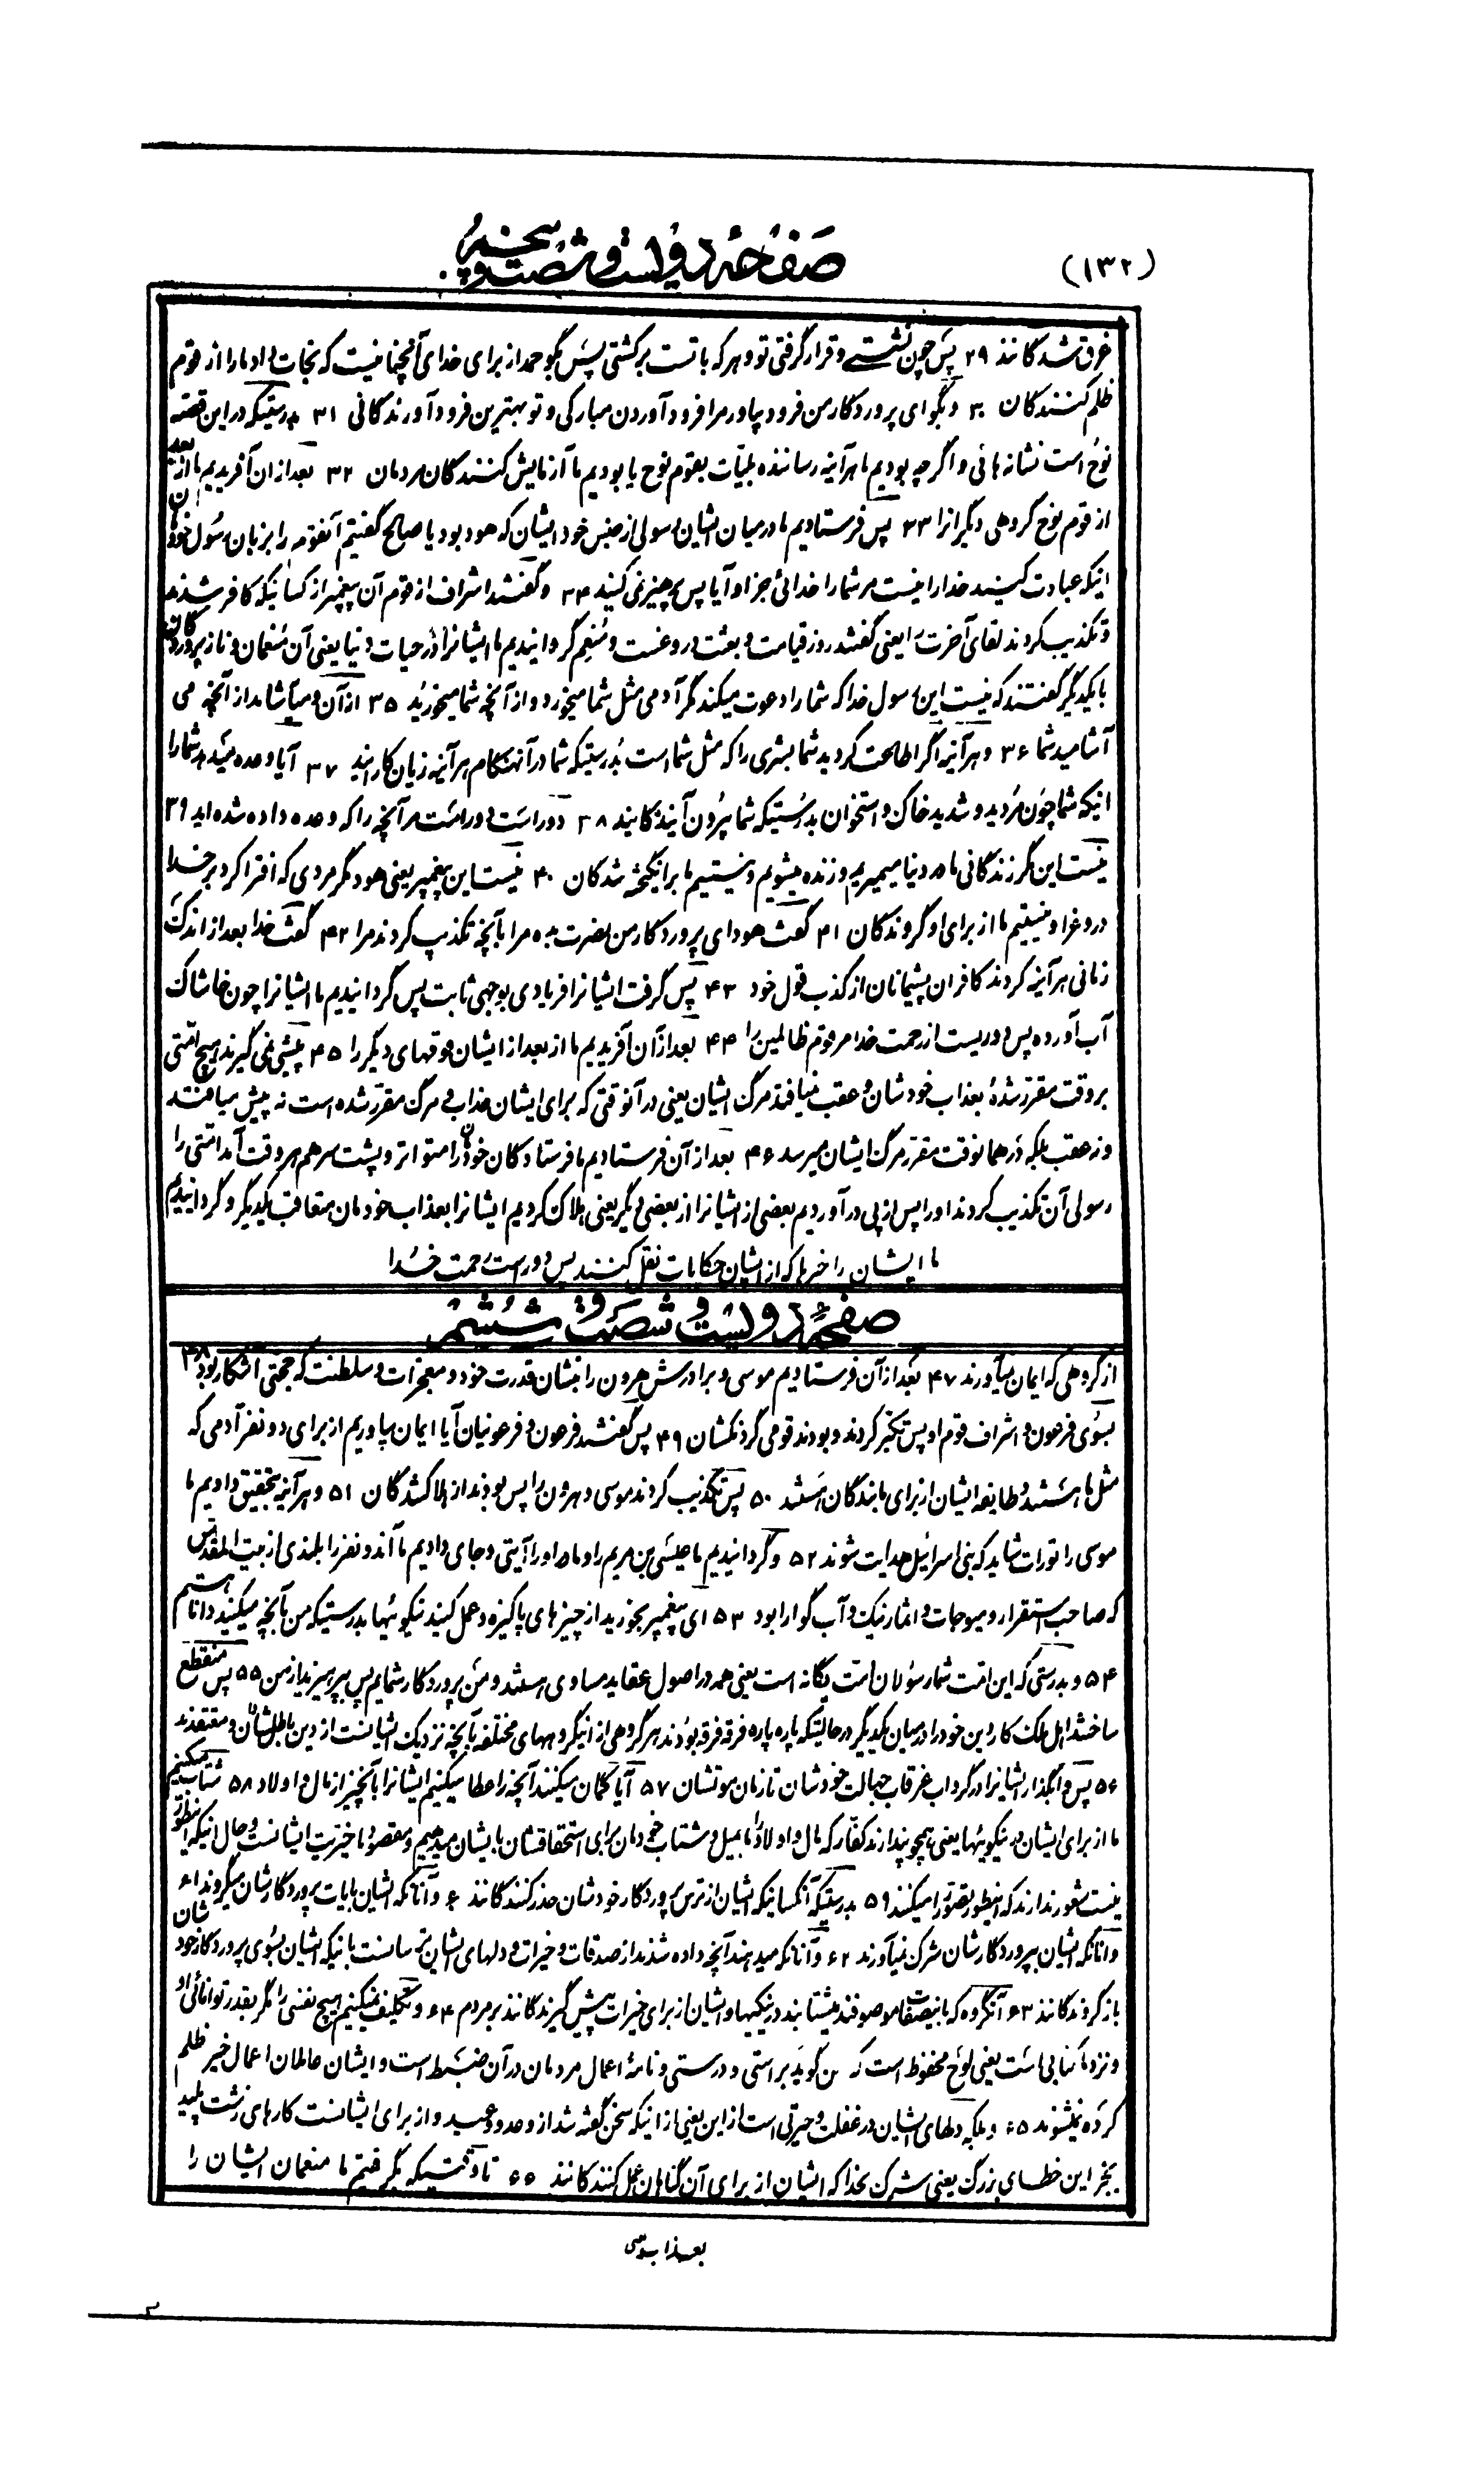 (۱۳۲)
صفحهٔ دویست و شصت و پنجم
غرق شدگانند ۲۹ پس چون نشستی و قرار گرفتی تو و هر که با تست بر کشتی پس بگو حمد از برای خدای آنچنانیست که نجات داد ما را از قوم
ظلم کنندگان ۳۰ و بگو ای پروردگار من فرود بیاور مرا فرود آوردن مبارکی و تو بهترین فرود آورندگانی ۳۱ بدرستیکه در این قصه
نوح است نشانه هائی و اگر چه بودیم ما هر آینه رساننده بلیّات بقوم نوح یا بودیم ما آزمایش کنندگان مردمان ۳۲ بعد از ان آفریدیم ما از بعد
از قوم نوح گروهی دیگرانرا ۳۳ پس فرستادیم ما در میان ایشان رسولی از جنس خود ایشان که هود بود یا صالح گفتیم آنقومه را بزبان رسول خودمان
اینکه عبادت کنید خدا را نیست مر شما را خدائی جز او آیا پس پرهیز نمی کنید ۳۴ و گفتند اشراف از قوم آن پیغمبر از کسانیکه کافر شدند
و تکذیب کردند لقای آخرت را یعنی گفتند روز قیامت و بعثت دروغست و مُنعم گردانیدیم ما ایشانرا در حیات دنیا یعنی آن مُنعمان و ناز پروردگان
با یکدیگر گفتند که نیست این رسول خدا که شما را دعوت میکند مگر آدمی مثل شما میخورد و از آنچه شما میخورید ۳۵ از آن و میآشامد از آنچه می
آشامید شما ۳۶ و هر آینه اگر اطاعت کردید شما بشری را که مثل شما است بدرستیکه شما در آنهنکام هر آینه زیان کارانید ۳۷ آیا وعده میدهد شما را
اینکه شما چون مُردید و شدید خاک و استخوان بدرستیکه شما بیرون آیندکانید ۳۸ دور است و دور است مر آنچه را که وعده داده شده اید ۳۹
نیست این مگر زندگانی ما در دنیا میمیریم و زنده میشویم و نیستیم ما برانگیخته شدکان ۴۰ نیست این پیغمبر یعنی هود مگر مردی که افترا کرد بر خدا
دروغرا و نیستیم ما از برای او گروندکان ۴۱ گفت هود ای پروردکار من نصرت بده مرا بآنچه تکذیب کردند مرا ۴۲ گفت خدا بعد از اندک
زمانی هر آینه کردند کافران پشیمانان از کذب قول خود ۴۳ پس گرفت ایشانرا فریادی بوجهی ثابت پس گردانیدیم ما ایشانرا چون خاشاک
آب آورده پس دوریست از رحمت خدا مر قوم ظالمین را ۴۴ بعد از آن آفریدیم ما از بعد از ایشان قومهای دیگر را ۴۵ پیشی نمی گیرند هیچ امّتی
بر وقت مقرّر شدهٔ بعذاب خودشان و عقب نیافتد مرک ایشان یعنی در آنوقتی که برای ایشان عذاب و مرک مقرّر شده است نه پیش میافتند
و نه عقب بلکه در همانوقت مقرّر مرک ایشان میرسد ۴۶ بعد از آن فرستادیم ما فرستادکان خودمان را متواتر و پشت سر هم هر وقت آمد امّتی را
رسولی آن تکذیب کردند او را پس از پی در آوردیم بعضی از ایشانرا از بعضی دیگر یعنی هلاک کردیم ایشانرا بعذاب خودمان متعاقب یکدیگر و گردانیدیم
ما ایشان را خبرها که از ایشان حکایات نقل کنند پس دور است رحمت خُدا
صفحهٔ دویست و شصت و ششم
از گروهی که ایمان نیاورند ۴۷ بعد از آن فرستادیم موسی و برادرش هرون را بنشان قدرت خود و معجزات و سلطنت که حجّتی آشکار بود ۴۸
بسوی فرعون و اشراف قوم او پس تکبّر کردند و بودند قومی گردنکشان ۴۹ پس گفتند فرعون و فرعونیان آیا ایمان بیاوریم از برای دو نفر آدمی که
مثل ما هستند و طایفه ایشان از برای ما بندگان هستند ۵۰ پس تکذیب کردند موسی و هرون را پس بودند از هلاک شدگان ۵۱ و هر آینه بتحقیق دادیم ما
موسی را تورات شاید که بنی اسرائیل هدایت شوند ۵۲ و گردانیدیم ما عیسی بن مریم را و مادر او را آیتی و جای دادیم ما آندو نفر را بلندی از بیت المقدّس
که صاحب استقرار و میوجات و اثمار نیک و آب گوارا بود ۵۳ ای پیغمبر بخورید از چیزهای پاکیزه و عمل کنید نیکوئیها بدرستیکه من بآنچه میکنید دانا هستم
۵۴ و بدرستی که این امّت شما رسولان امّت یگانه است یعنی همه در اصول عقاید مساوی هستند و من پروردگار شمایم پس بپرهیزید از من ۵۵ پس منقطع
ساختند اهل ملک کار دین خود را در میان یکدیگر در حالتیکه پاره پاره فرقه فرقه بودند هر گروهی از اینگروههای مختلفه بآنچه نزدیک ایشانست از دین باطلشان معتقدند
۵۶ پس واگذار ایشانرا در گرداب غرقاب جهالت خودشان تا زمان موتشان ۵۷ آیا گمان میکنند آنچه را عطا میکنیم ایشانرا بآنچیز از مال و اولاد ۵۸ شتاب میکنیم
ما از برای ایشان در نیکوئیها یعنی همچو پندارند کفّار که مال و اولاد را ما بمیل و شتاب خودمان برای استحقاقشان بایشان میدهیم و مقصود ما خیریّت ایشانست و حال اینکه اینطور
نیست شعور ندارند که اینطور تصوّر را میکنند ۵۹ بدرستیکه آنکسانیکه ایشان از ترس پروردگار خودشان حذر کنندگانند ۶۰ و آنانکه ایشان بآیات پروردگارشان میگروند ۶۱
و آنانکه ایشان بپروردگارشان شرک نمیآورند ۶۲ و آنانکه میدهند آنچه داده شدند از صدقات و خیرات و دلهای ایشان ترسانست بانیکه ایشان بسوی پروردگار خودشان
باز گروندگانند ۶۳ آنگروه که باینصفات موصوفند میشتابند در نیکیها و ایشان از برای خیرات پیش گیرندگانند بر مردم ۶۴ و تکلیف نمیکنیم هیچ نفسی را مگر بقدر توانائی او
و نزد ما کتابی است یعنی لوح محفوظ است که سخن گوید براستی و درستی و نامهٔ اعمال مردمان در آن ضبط است و ایشان عاملان اعمال خیر ظلم
کرده نمیشوند ۶۵ و بلکه دلهای ایشان در غفلت و حیرتی است از این یعنی از اینکه سخن گفته شد از وعد و وعید و از برای ایشانست کارهای زشت پلید
بجز این خطای بزرگ یعنی شرک بخدا که ایشان از برای آن گناهان عمل کنندگانند ۶۶ تا وقتیکه بگرفتیم ما منعمان ایشان را